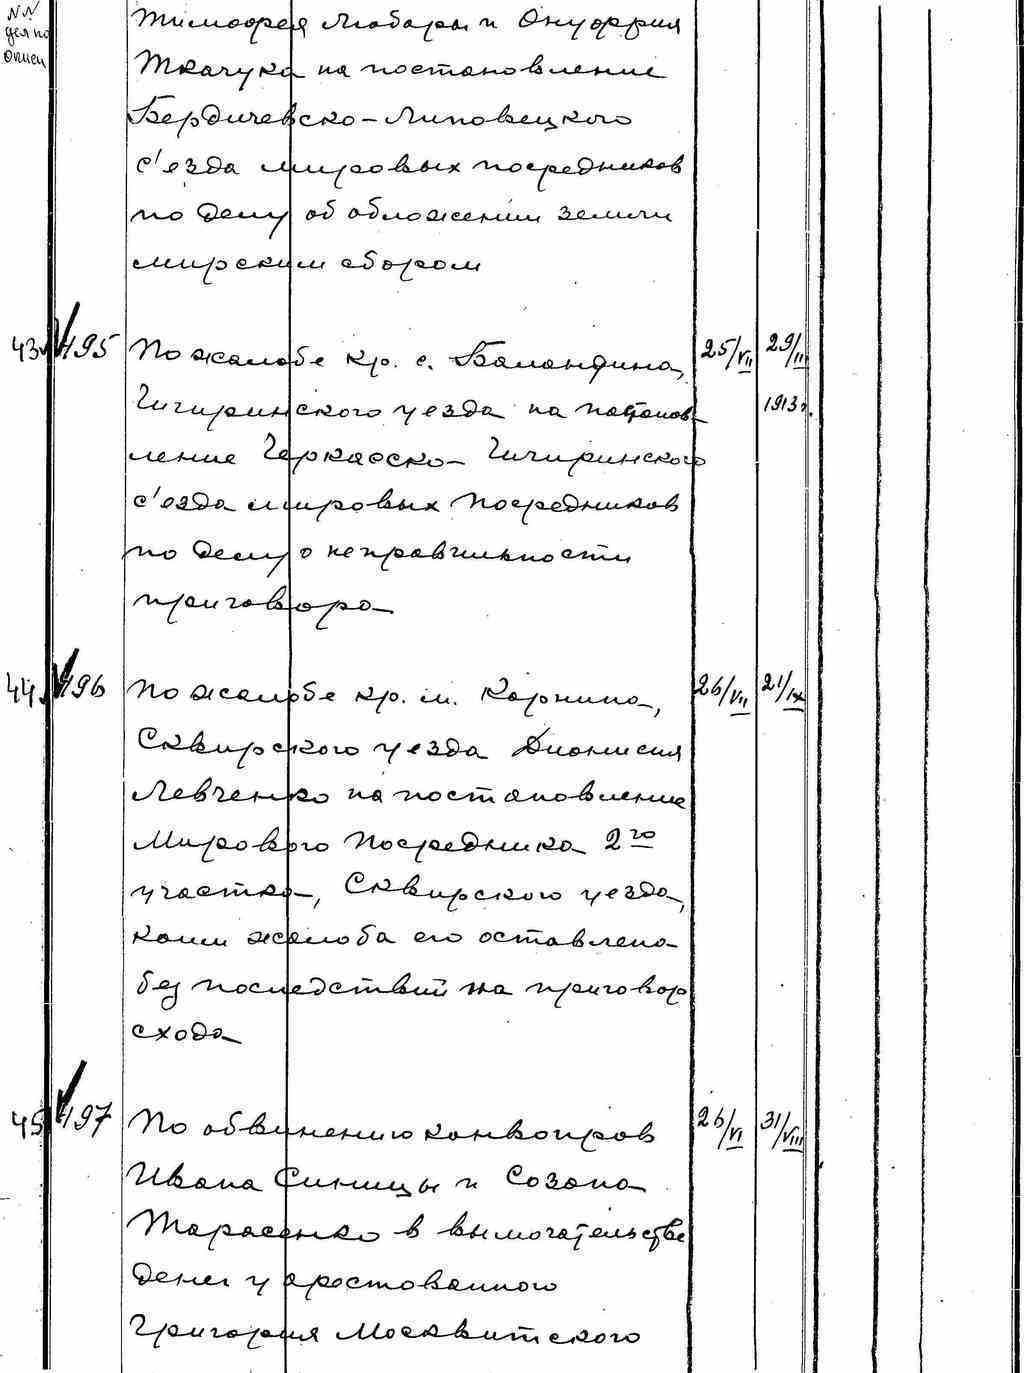 NN
дел по
описи
Тимофея Любары и Онуфрия
Ткачука на постановление
Бердичевско-Липовецкого
с'езда мировых посредников
по делу об обложении земли
мирским сбором
43 495 По жалобе кр. с. Баландина, 25/VII 29/II
Чигиринского уезда на постанов- 1913 г.
ление Черкасско-Чигиринского
с'езда мировых посредников
по делу о неправильности
приговора
44 496 По жалобе кр. м. Корнина, 26/VII 21/IX
Сквирского уезда Дионисия
Левченко на постановление
Мирового Посредника 2го
участка, Сквирского уезда,
коим жалоба его оставлена
без последствий на приговор
схода
45 497 По обвинению конвоиров 26/VI 31/VIII
Ивана Синицы и Созона
Тарасенко в вымогательстве
денег у арестованного
Григория Москвитского